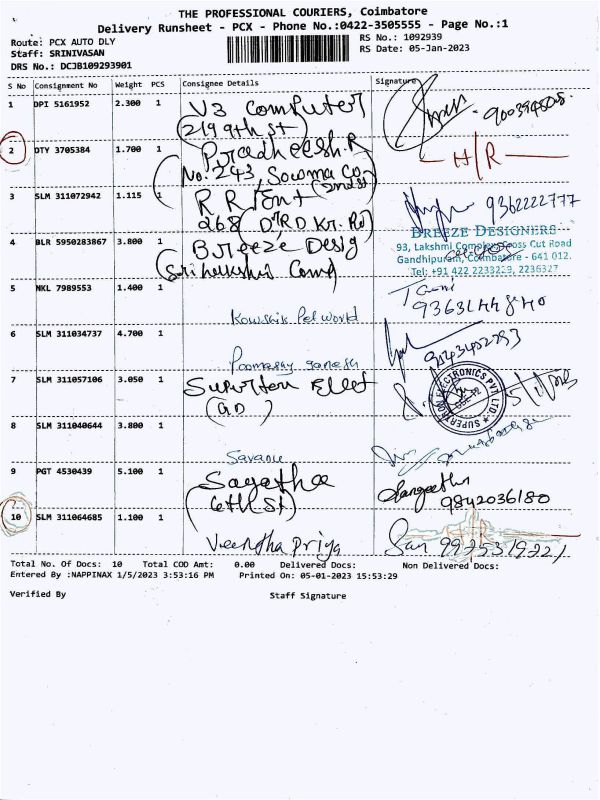 THE PROFESSIONAL COURIERS, Coimbatore
Delivery Runsheet - PCX - Phone No.:0422-3505555 - Page No.:1
Route: PCX AUTO DLY
Staff: SRINIVASAN
DRS No.: DCJB109293901
RS No.: 1092939
RS Date: 05-Jan-2023
S No Consignment No Weight PCS Consignee Details Signature
1 DPI 5161952 2.300 1 V3 Computer
(219 9th st)
2 DTY 3705384 1.700 1 Pradheesh.R H/R
No. 243,
3 SLM 311072942 1.115 1 R R Font 9362222777
268
4 BLR 5950283867 3.800 1 Breeze Desig
BREEZE DESIGNERS
93, Lakshmi Complex, Cross Cut Road
Gandhipuram, Coimbatore - 641 012.
Tel: +91 422 2233229, 2236327
5 NKL 7989553 1.400 1
Kowshik Pet world
6 SLM 311034737 4.700 1
ganesh
7 SLM 311057106 3.050 1
SUPERTRON ELECTRONICS PVT. LTD.
8 SLM 311040644 3.800 1
9 PGT 4530439 5.100 1 Sangeetha
(6th St) 9842036180
10 SLM 311064685 1.100 1
Priya
Total No. Of Docs: 10 Total COD Amt: 0.00 Delivered Docs: Non Delivered Docs:
Entered By :NAPPINAX 1/5/2023 3:53:16 PM Printed On: 05-01-2023 15:53:29
Verified By Staff Signature